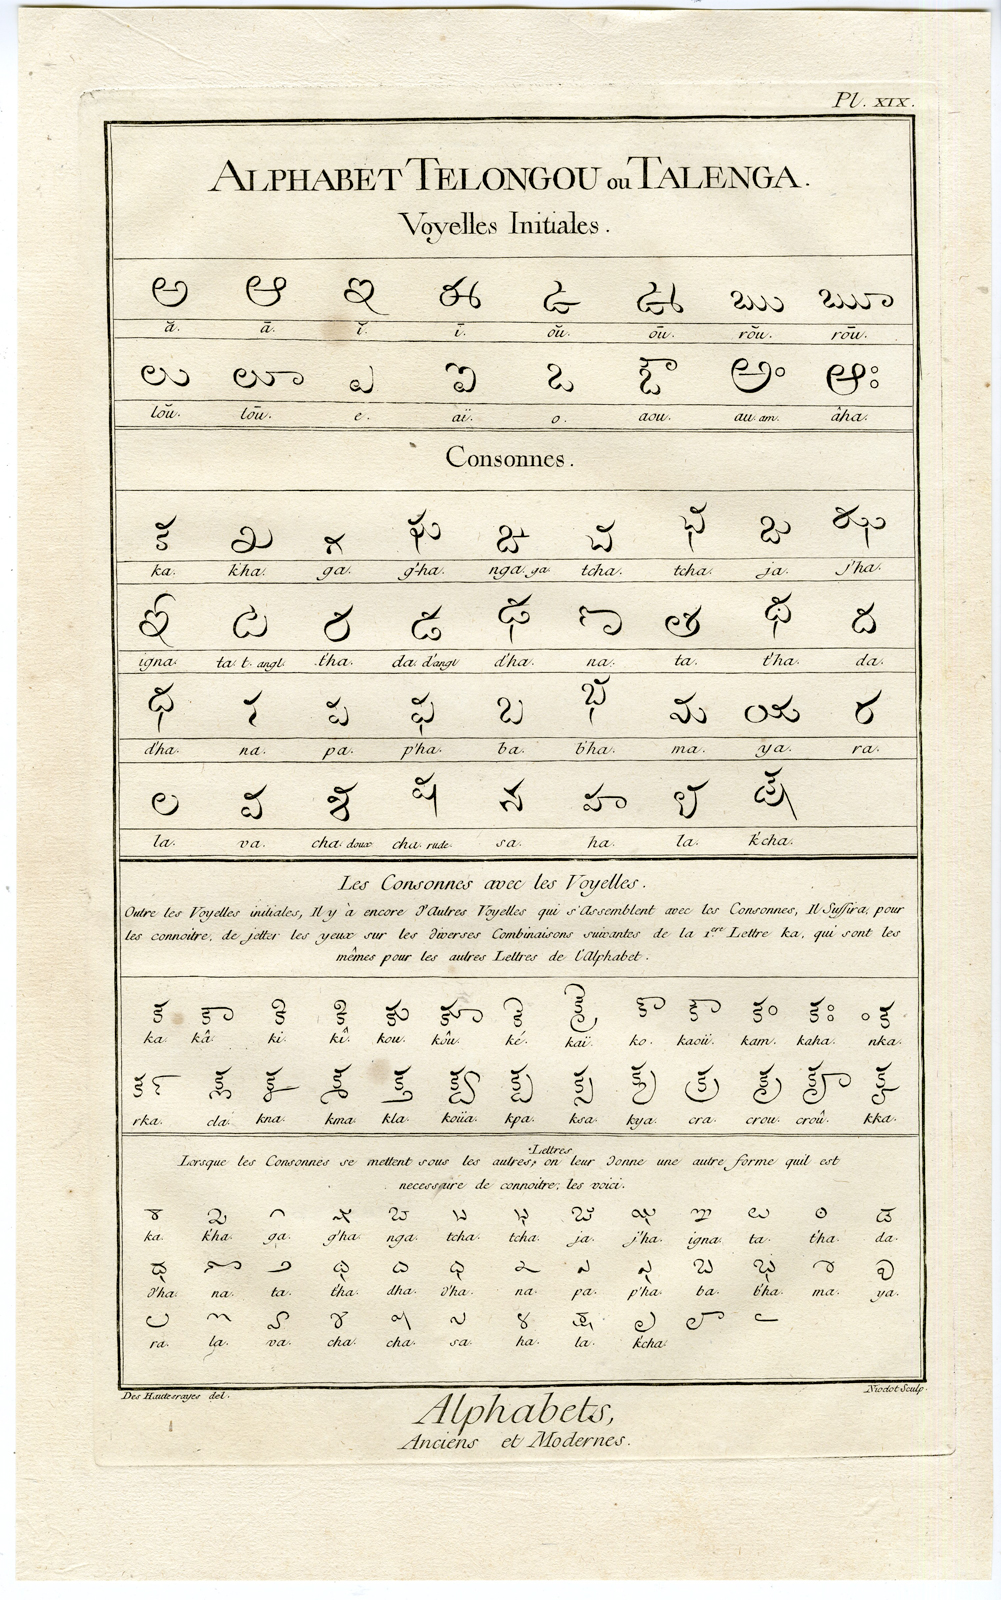 Pl. XIX.
ALPHABET TELONGOU ou TALENGA.
Voyelles Initiales.
అ ఆ ఇ ఈ ఉ ఊ ఋ ౠ
ă. ā. ĭ. ī. oŭ. oū. roŭ. roū.
ఌ ౡ ఎ ఐ ఒ ఔ అం అః
loŭ. loū. e. aï. o. aou. au. am. âha.
Consonnes.
క ఖ గ ఘ ఙ చ ఛ జ ఝ
ka. k'ha. ga. g'ha. nga. ga. tcha. tcha. ja. j'ha.
ఞ ట ఠ డ ఢ ణ త థ ద
igna. ta. t. angl. t'ha. da. d'angl d'ha. na. ta. t'ha. da.
ధ న ప ఫ బ భ మ య ర
d'ha. na. pa. p'ha. ba. b'ha. ma. ya. ra.
ల వ శ ష స హ ళ క్ష
la. va. cha. doux cha. rude. sa. ha. la. k'cha.
Les Consonnes avec les Voyelles.
Outre les Voyelles initiales, Il y à encore d'Autres Voyelles qui s'Assemblent avec les Consonnes, Il Suffira, pour
les connoitre, de jetter les yeux sur les diverses Combinaisons suivantes de la 1ere Lettre ka, qui sont les
mêmes pour les autres Lettres de l'Alphabet.
ka. kâ. ki. kî. kou. koû. ké. kaï. ko. kaoü. kam. kaha. nka.
rka. cla. kna. kma. kla. koüa. kpa. ksa. kya. cra. crou. croû. kka.
Lorsque les Consonnes se mettent sous les autres, Lettres on leur donne une autre forme quil est
necessaire de connoitre, les voici.
ka. k'ha. ga. g'ha. nga. tcha. tcha. ja. j'ha. igna. ta. t'ha. da.
d'ha. na. ta. t'ha. dha. d'ha. na. pa. p'ha. ba. b'ha. ma. ya.
ra. la. va. cha. cha. sa. ha. la. k'cha.
Des Hautesrayes del.
Niodot Sculp.
Alphabets,
Anciens et Modernes.